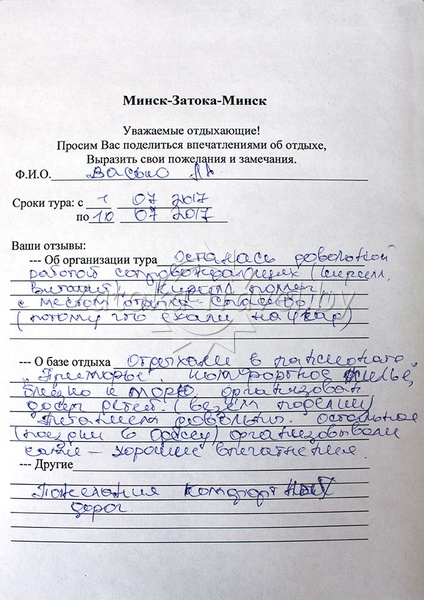 Минск-Затока-Минск
Уважаемые отдыхающие!
Просим Вас поделиться впечатлениями об отдыхе,
Выразить свои пожелания и замечания.
Ф.И.О. Васько
Сроки тура: с 1 07 2017
по 10 07 2017
Ваши отзывы:
--- Об организации тура Осталась довольной
работой сопровождающих (Кирилл,
Виталий) Кирилл помог
с местом отдыха Спасибо
(потому что ехали наугад)
--- О базе отдыха Отдыхали в пансионате
"Приморье", комфортное жилье,
близко к морю, организован
досуг детей.
Питанием довольны. остальное
(поездки в Одессу) организовывали
сами – хорошие впечатления.
--- Другие
Пожелания комфортных
дорог